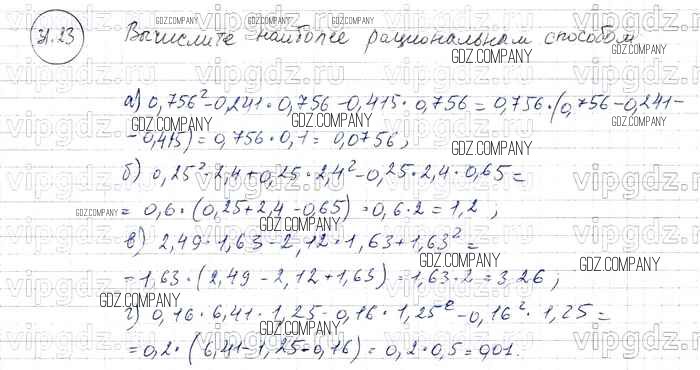 31.23 Вычислите наиболее рациональным способом
а) 0,756² - 0,241 · 0,756 - 0,415 · 0,756 = 0,756 · (0,756 - 0,241 -
- 0,415) = 0,756 · 0,1 = 0,0756;
б) 0,25² · 2,4 + 0,25 · 2,4² - 0,25 · 2,4 · 0,65 =
= 0,6 · (0,25 + 2,4 - 0,65) = 0,6 · 2 = 1,2;
в) 2,49 · 1,63 - 2,12 · 1,63 + 1,63² =
= 1,63 · (2,49 - 2,12 + 1,63) = 1,63 · 2 = 3,26;
г) 0,16 · 6,41 · 1,25 - 0,16 · 1,25² - 0,16² · 1,25 =
= 0,2 · (6,41 - 1,25 - 0,16) = 0,2 · 0,5 = 0,01.
vipgdz.ru
GDZ.COMPANY